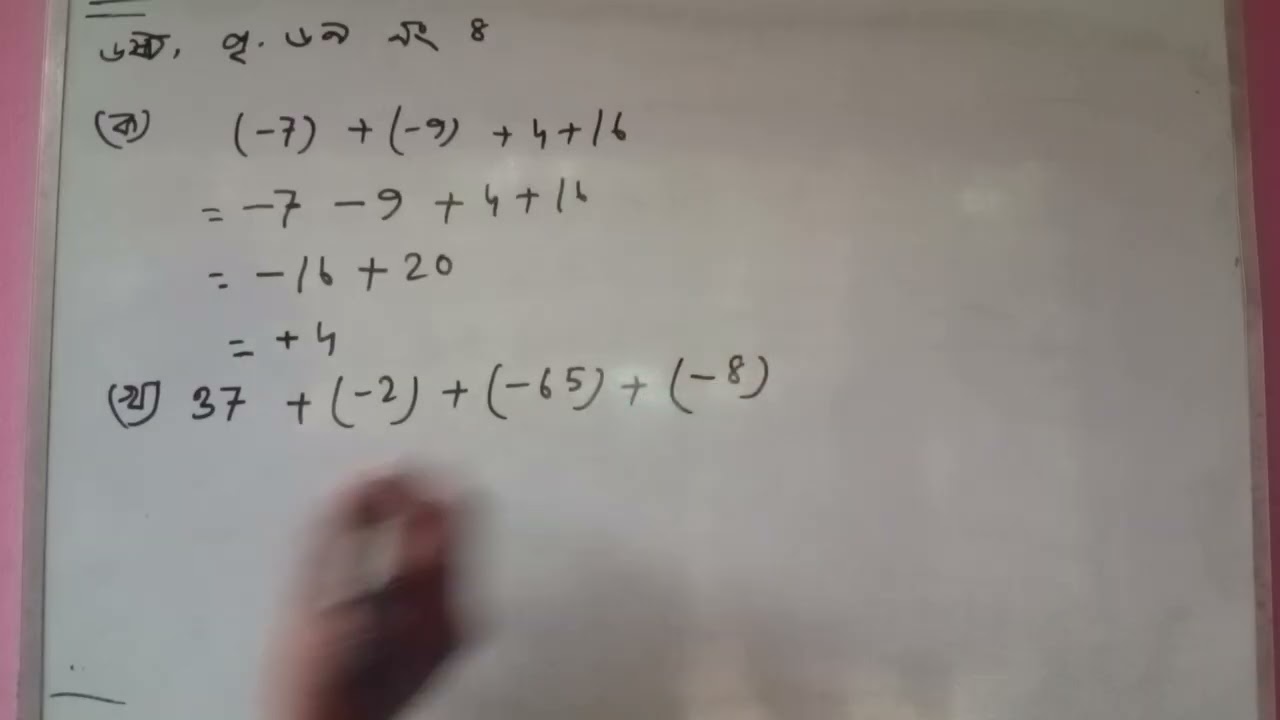 পৃ. নং ৪
(ক) (-7) + (-9) + 4 + 16
= -7 - 9 + 4 + 16
= -16 + 20
= + 4
(খ) 37 + (-2) + (-65) + (-8)